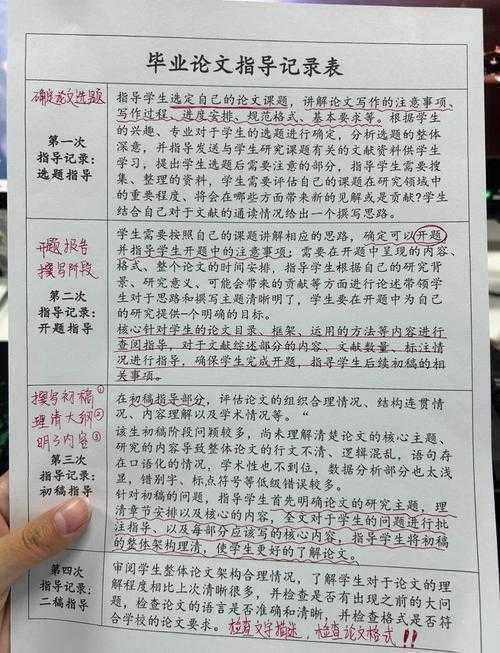 毕业论文指导记录表
确定论文选题
第一次
指导记录:
选题指导
指导学生选定自己的论文课题，讲解论文写作的注意事项、
写作过程、进度安排、规范格式、基本要求等。根据学生
的兴趣、专业对于学生的选题进行确定，分析选题的整体
深意，并指导发送与学生研究课题有关的文献资料供学生
学习，提出学生选题后需要注意的部分，指导学生需要搜
集、整理的资料，学生需要评估自己的课题在研究领域中
的重要程度、将会在哪些方面带来新的见解或是贡献?学生
结合自己对于文献的通读情况给出一个撰写思路。
开题报告
撰写阶段
第二次
指导记录:
开题指导
学生需要按照自己的课题讲解相应的思路，确定可以开题，
并指导学生开题中的注意事项；需要在开题中呈现的内容、
格式、整个论文的时间安排，指导学生根据自己的研究背
景、研究意义、可能会带来的贡献等方面进行论述带领学
生对于思路和撰写主题清晰明了，学生要在开题中为自己
的研究提供一个明确的目标。
核心针对学生的论文目录、框架、运用的方法等内容进行
查阅指导，对于文献综述部分的内容、文献数量、标注情
况进行指导，确保学生完成开题，指导学生后续初稿的相
关事项。
撰写初稿①
理清大纲②
明了内容③
第三次
指导记录:
初稿指导
在初稿指导部分，评估论文的组织合理情况、结构连贯情
况、内容理解以及学术情况等。“
该生初稿阶段问题较多，尚未理清楚论文的核心主题、
研究的内容导致整体论文的行文不清、逻辑混乱，语句存
在口语化的情况，学术性也不到位，数据分析部分也太浅
显，错别字、标点符号等低级错误较多。
针对初稿的问题，指导学生首先明确论文的研究主题，理
清章节安排以及核心的内容，全文对于学生的问题进行批
注指导、以及每部分应该写的核心内容，指导学生将初稿
的整体架构理清，使学生更好的了解论文。
第四次
指导记录:
二稿指导
审阅学生整体论文架构合理情况，了解学生对于论文的理
解程度相比上次清晰很多，并检查是否有出现之前的大问
题，检查论文的语言是否准确和清晰，并检查格式是否符
合学校的论文要求。检查文字描述，检查论文格式!!